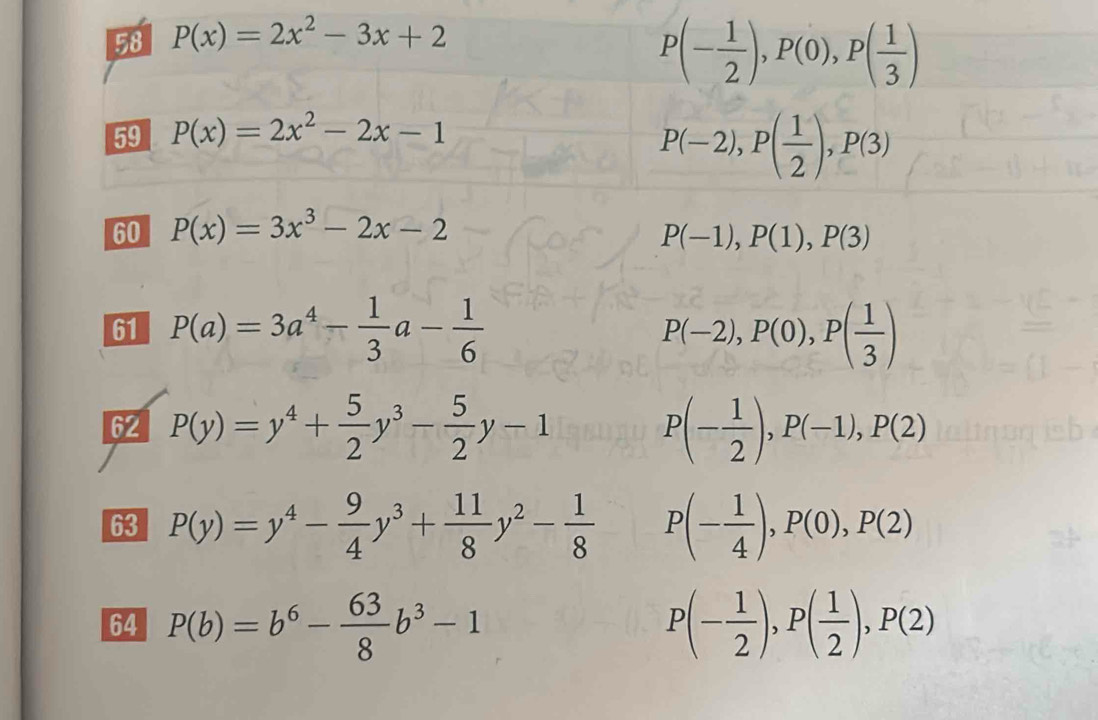 58 P(x) = 2x² − 3x + 2 P(−1/2), P(0), P(1/3)
59 P(x) = 2x² − 2x − 1 P(−2), P(1/2), P(3)
60 P(x) = 3x³ − 2x − 2 P(−1), P(1), P(3)
61 P(a) = 3a⁴ − 1/3 a − 1/6 P(−2), P(0), P(1/3)
62 P(y) = y⁴ + 5/2 y³ − 5/2 y − 1 P(−1/2), P(−1), P(2)
63 P(y) = y⁴ − 9/4 y³ + 11/8 y² − 1/8 P(−1/4), P(0), P(2)
64 P(b) = b⁶ − 63/8 b³ − 1 P(−1/2), P(1/2), P(2)